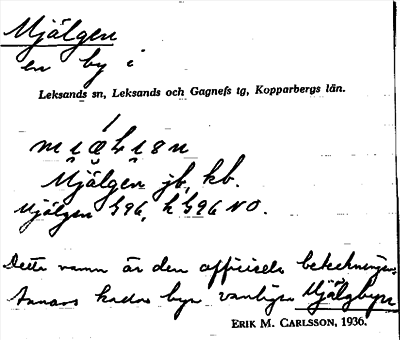 Mjälgen
en by i
Leksands sn, Leksands och Gagnefs tg, Kopparbergs län.
Mjälgen jb, kb.
Mjälgen G96, h G96 NO.
Detta namn är den officiella beteckningen.
Annars kallas byn vanligen Mjälgbyn
ERIK M. CARLSSON, 1936.